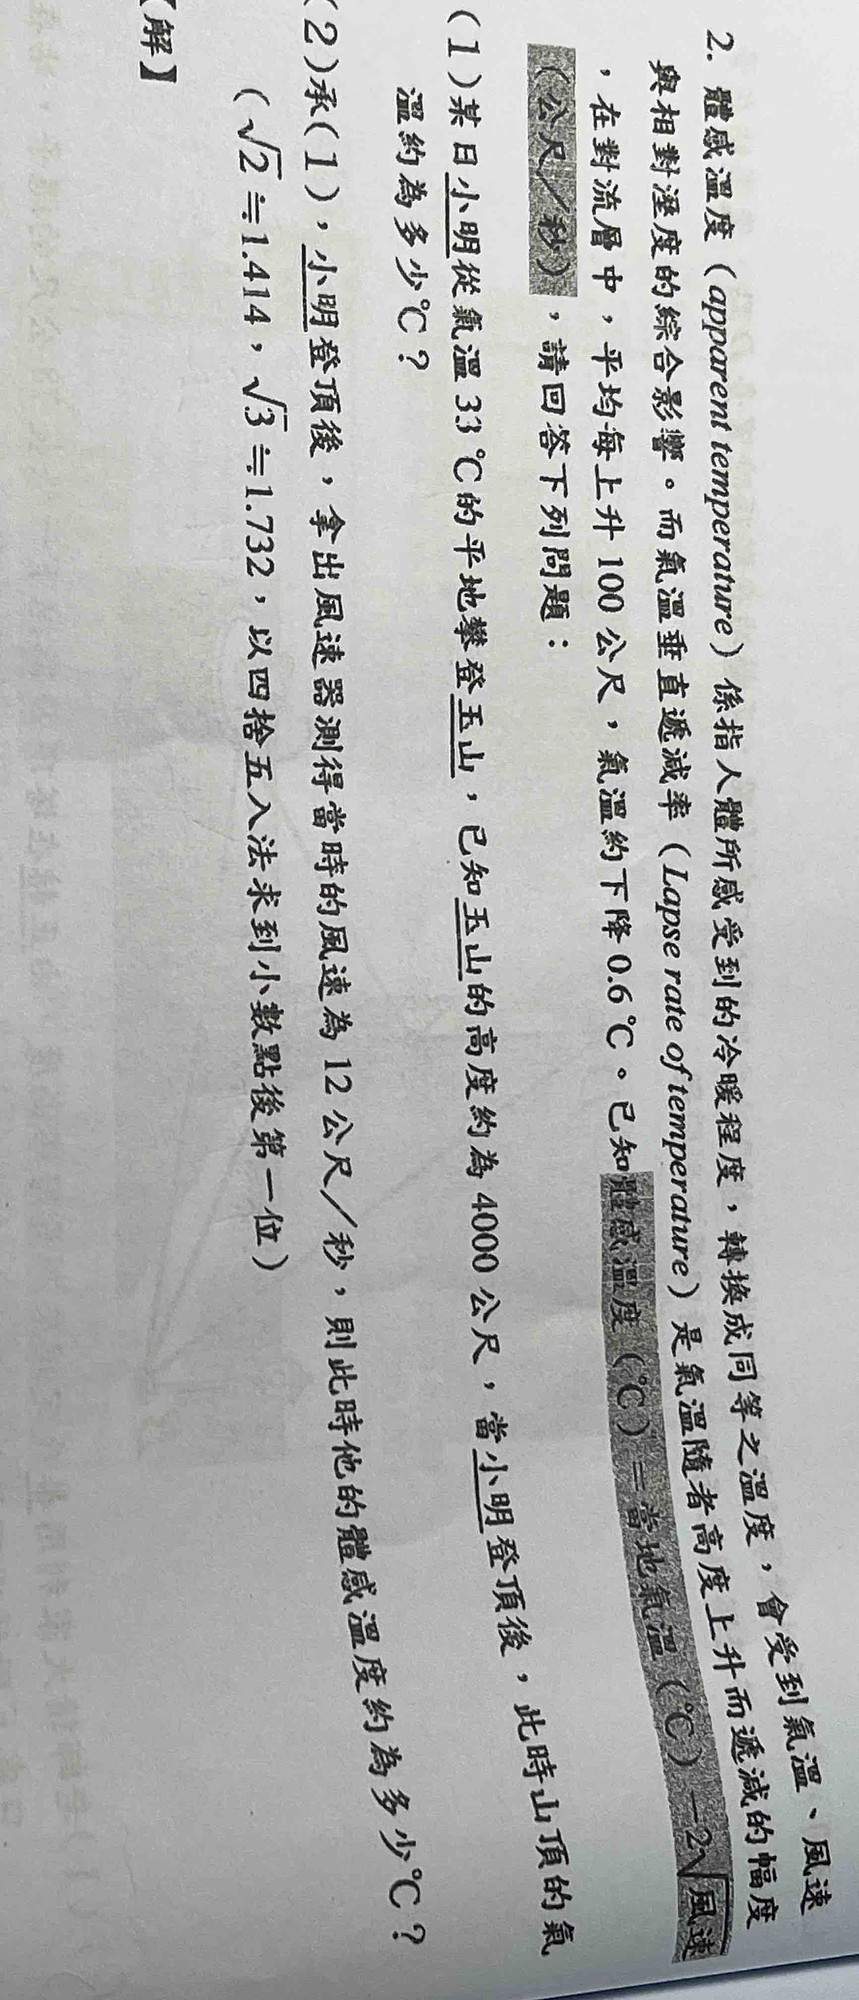 2. 體感溫度(apparent temperature)係指人體所感受到的冷暖程度，轉換成同等之溫度，會受到氣溫、風速
與相對溼度的綜合影響。而氣溫垂直遞減率(Lapse rate of temperature)是氣溫隨者高度上升而遞減的幅度
，在對流層中，平均每上升100公尺，氣溫約下降0.6℃。已知體感溫度(℃)＝當地氣溫(℃)－2√風速
(公尺／秒)，請回答下列問題：
(1)某日小明從氣溫33℃的平地攀登玉山，已知玉山的高度約為4000公尺，當小明登頂後，此時山頂的氣
溫約為多少℃？
(2)承(1)，小明登頂後，拿出風速器測得當時的風速為12公尺／秒，則此時他的體感溫度約為多少℃？
(√2≒1.414，√3≒1.732，以四捨五入法求到小數點後第一位)
【解】